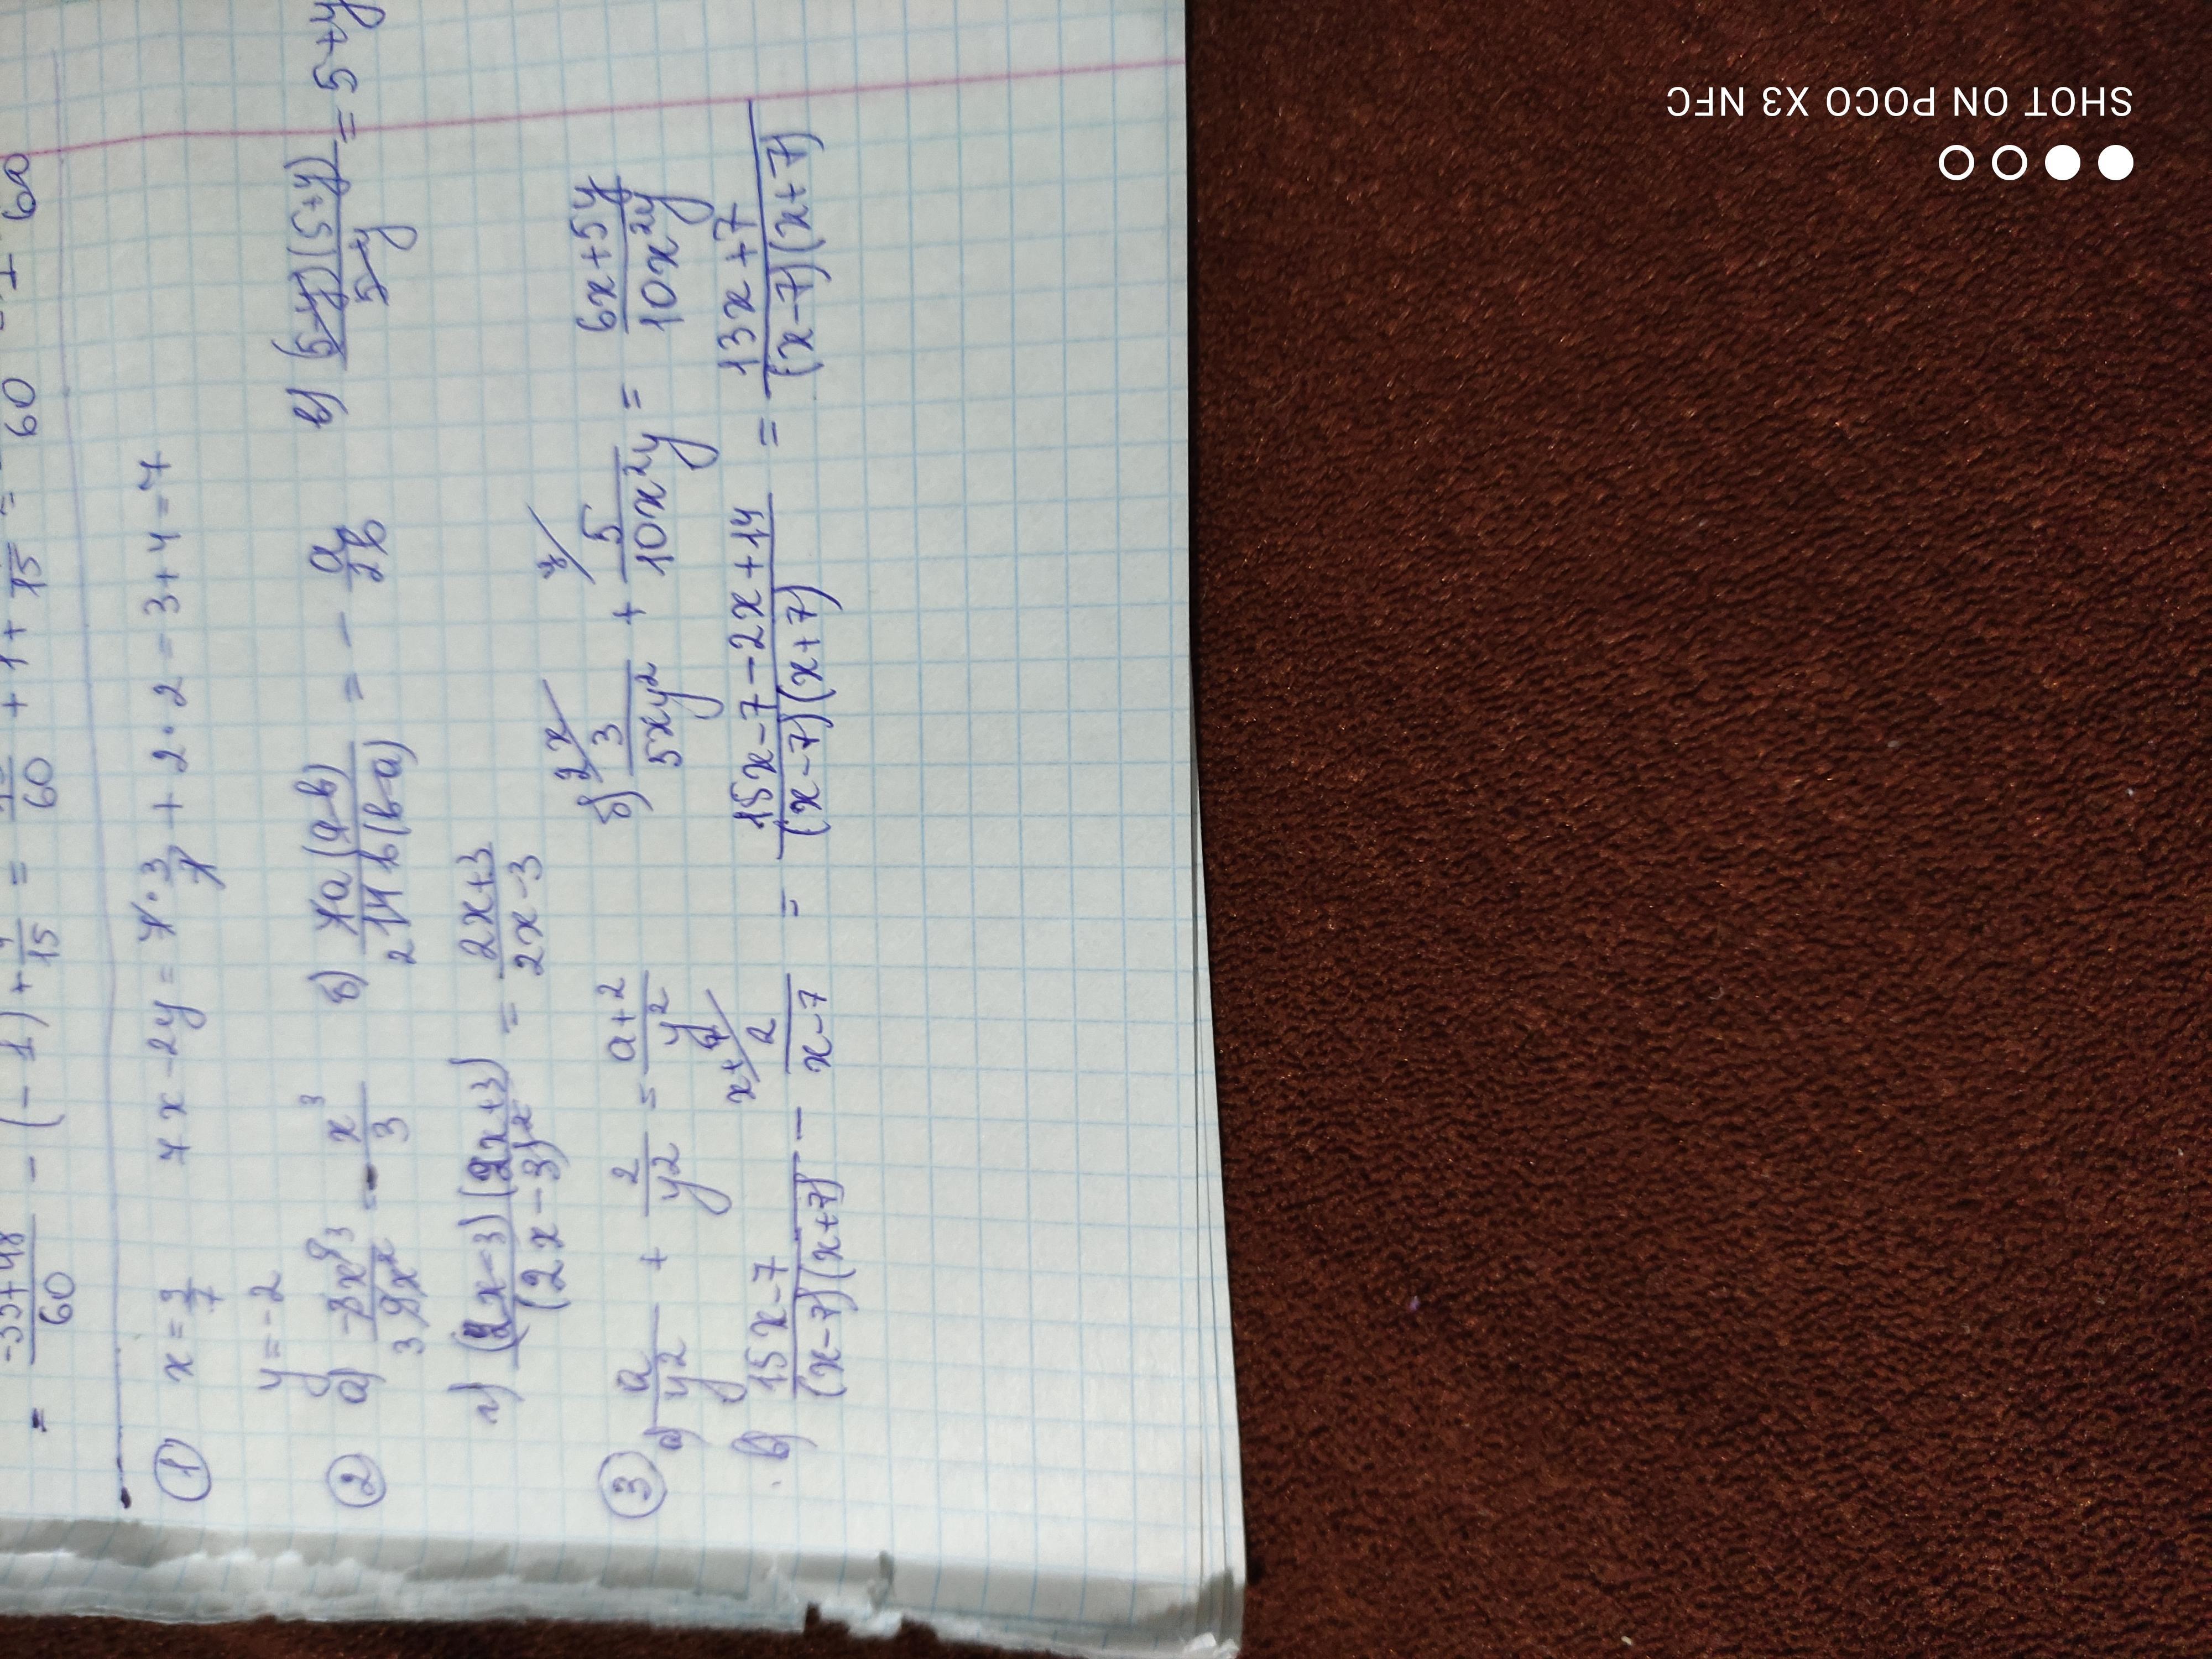 = \frac{-35+48}{60} - (-1) + \frac{4}{15} = \frac{}{60} + 1 + \frac{}{15} = \frac{}{60}
① x = \frac{3}{7} 7x - 2y = 7 · \frac{3}{7} + 2 · 2 = 3 + 4 = 7
y = -2
② а) \frac{-3x^9}{9x^6} = - \frac{x^3}{3} б) \frac{7a(a-b)}{14b(b-a)} = - \frac{a}{2b} в) \frac{(5-y)(5+y)}{5-y} = 5+y
г) \frac{(2x-3)(2x+3)}{(2x-3)^2} = \frac{2x+3}{2x-3}
③ а) \frac{a}{y^2} + \frac{2}{y^2} = \frac{a+2}{y^2} б) \frac{3}{5xy^2} + \frac{5}{10x^2y} = \frac{6x+5y}{10x^2y}
в) \frac{15x-7}{(x-7)(x+7)} - \frac{2}{x-7} = \frac{15x-7-2x+14}{(x-7)(x+7)} = \frac{13x+7}{(x-7)(x+7)}
SHOT ON POCO X3 NFC